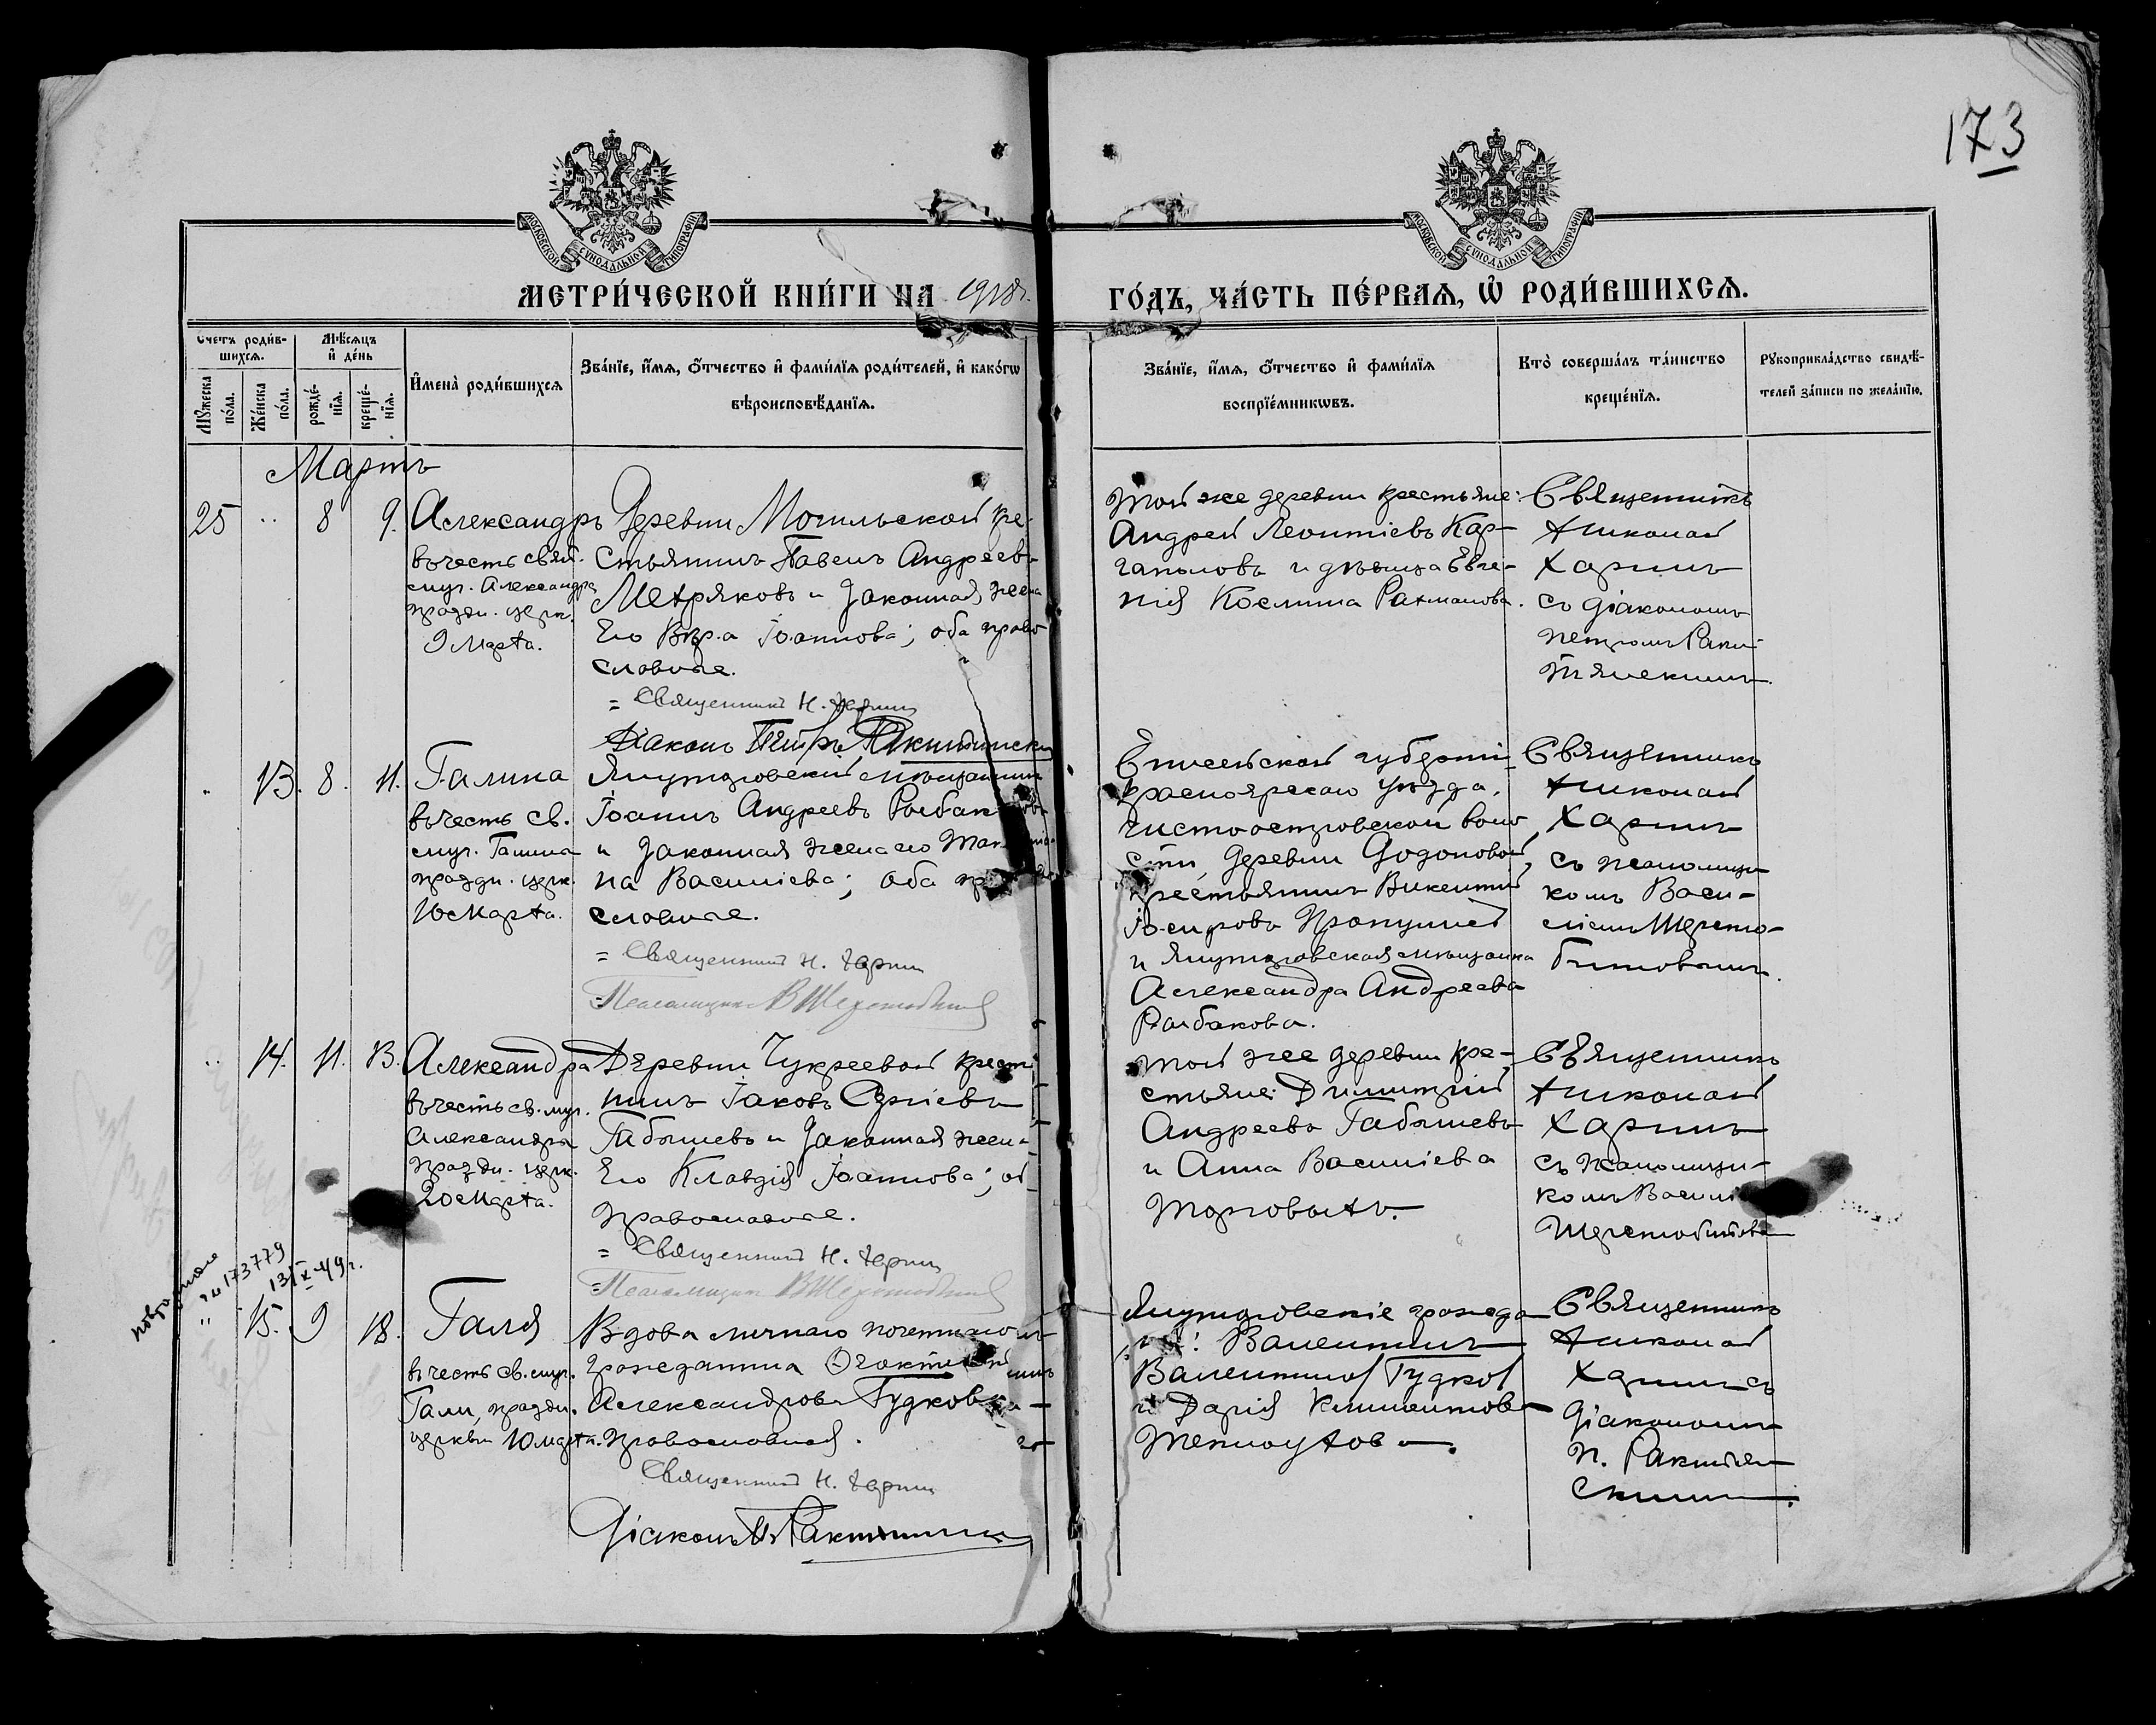 173
МОСКОВСКОЙ СѴНОДАЛЬНОЙ ТИПОГРАФІИ
МОСКОВСКОЙ СѴНОДАЛЬНОЙ ТИПОГРАФІИ
МЕТРИ́ЧЕСКОЙ КНИ́ГИ НА 1918 г.
ГО́ДЪ, ЧА́СТЬ ПЕ́РВАѦ, Ѡ РОДИ́ВШИХСѦ.
Счетъ роди́в-
шихсѧ.
Мꙋжеска
по́ла.
Же́нска
по́ла.
Мѣ́сѧцъ
и҆ де́нь
рожде́-
нїѧ.
креще́-
нїѧ.
И҆мена̀ роди́вшихсѧ
Зва́нїе, и҆́мѧ, ѻ҆́тчество и҆ фами́лїѧ роди́телей, и҆ како́гѡ
вѣроисповѣ́данїѧ.
Зва́нїе, и҆́мѧ, ѻ҆́тчество и҆ фами́лїѧ
воспрїе́мникѡвъ.
Кто̀ соверша́лъ та́инство
креще́нїѧ.
Рꙋкоприкла́дство свидѣ́-
телей за́писи по жела́нїю.
Мартъ
25 " 8 9.
Александръ
въ честь свящ.
муч. Александра
праздн. церк.
9 Марта.
Деревни Могильской кре-
стьянинъ Павелъ Андреевъ
Метряковъ и законная жена
Его Вѣра Іоаннова; оба право
славные.
= Священникъ Н. Харин
Діаконъ Петръ Ракитянскій
Той же деревни крестьяне:
Андрей Леонтіевъ Кар-
гаполовъ и дѣвица Евге-
нія Космина Рахманова.
Священникъ
Николай
Харинъ
съ діакономъ
Петромъ Раки-
тянскимъ.
" 13. 8. 11.
Галина
въ честь св.
муч. Галины
праздн. церк.
10 Марта.
Ялуторовскій мѣщанинъ
Іоаннъ Андреевъ
и законная жена его
на Василіева; оба
славные.
= Священникъ Н. Харин
= Псаломщикъ В Шерстобитов
Енисейской губерніи
Красноярскаго уѣзда,
Чистоостровской воло
сти, деревни
крестьянинъ Викентій
и Ялуторовская мѣщанка
Александра Андреева
Рыбакова.
Священникъ
Николай
Харинъ
съ псаломщи-
комъ Васи-
ліемъ Шерсто-
битовымъ.
" 14. 11. 13.
Александра
въ честь св. муч.
Александры
праздн. церк.
20 Марта.
Деревни Чукреевой крестья
нинъ Іаковъ Сергіевъ
Габышевъ и законная жена
Его Клавдія Іоаннова; об
православные.
= Священникъ Н. Харин
= Псаломщикъ В Шерстобитов
Той же деревни кре-
стьяне: Димитрій
Андреевъ Габышевъ
и Анна Василіева
Торговыхъ.
Священникъ
Николай
Харинъ
съ псаломщи-
комъ Василі
Шерстобитовы
повторное
173779
13/X-49 г.
" 15. 9 18.
Галя
въ честь св. муч.
Гали, праздн.
церкви 10 марта.
Вдова личнаго почетнаго
гражданина
Александрова Гудкова
православная.
Священникъ Н. Харин
Діаконъ П. Ракитянскій
Ялуторовскіе гражда
не: Валентинъ
Валентинов Гудков
и Дарія Климентова
Теплоухова.
Священникъ
Николай
Харинъ съ
діакономъ
П. Ракитян
скимъ.